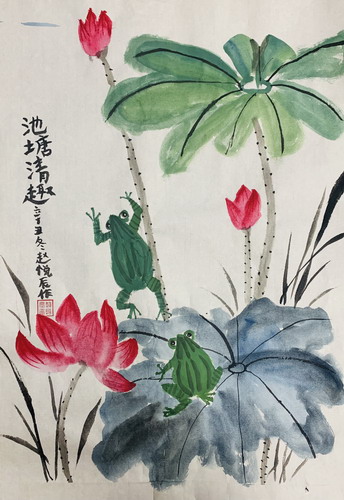 池塘清趣辛丑冬赵悦作